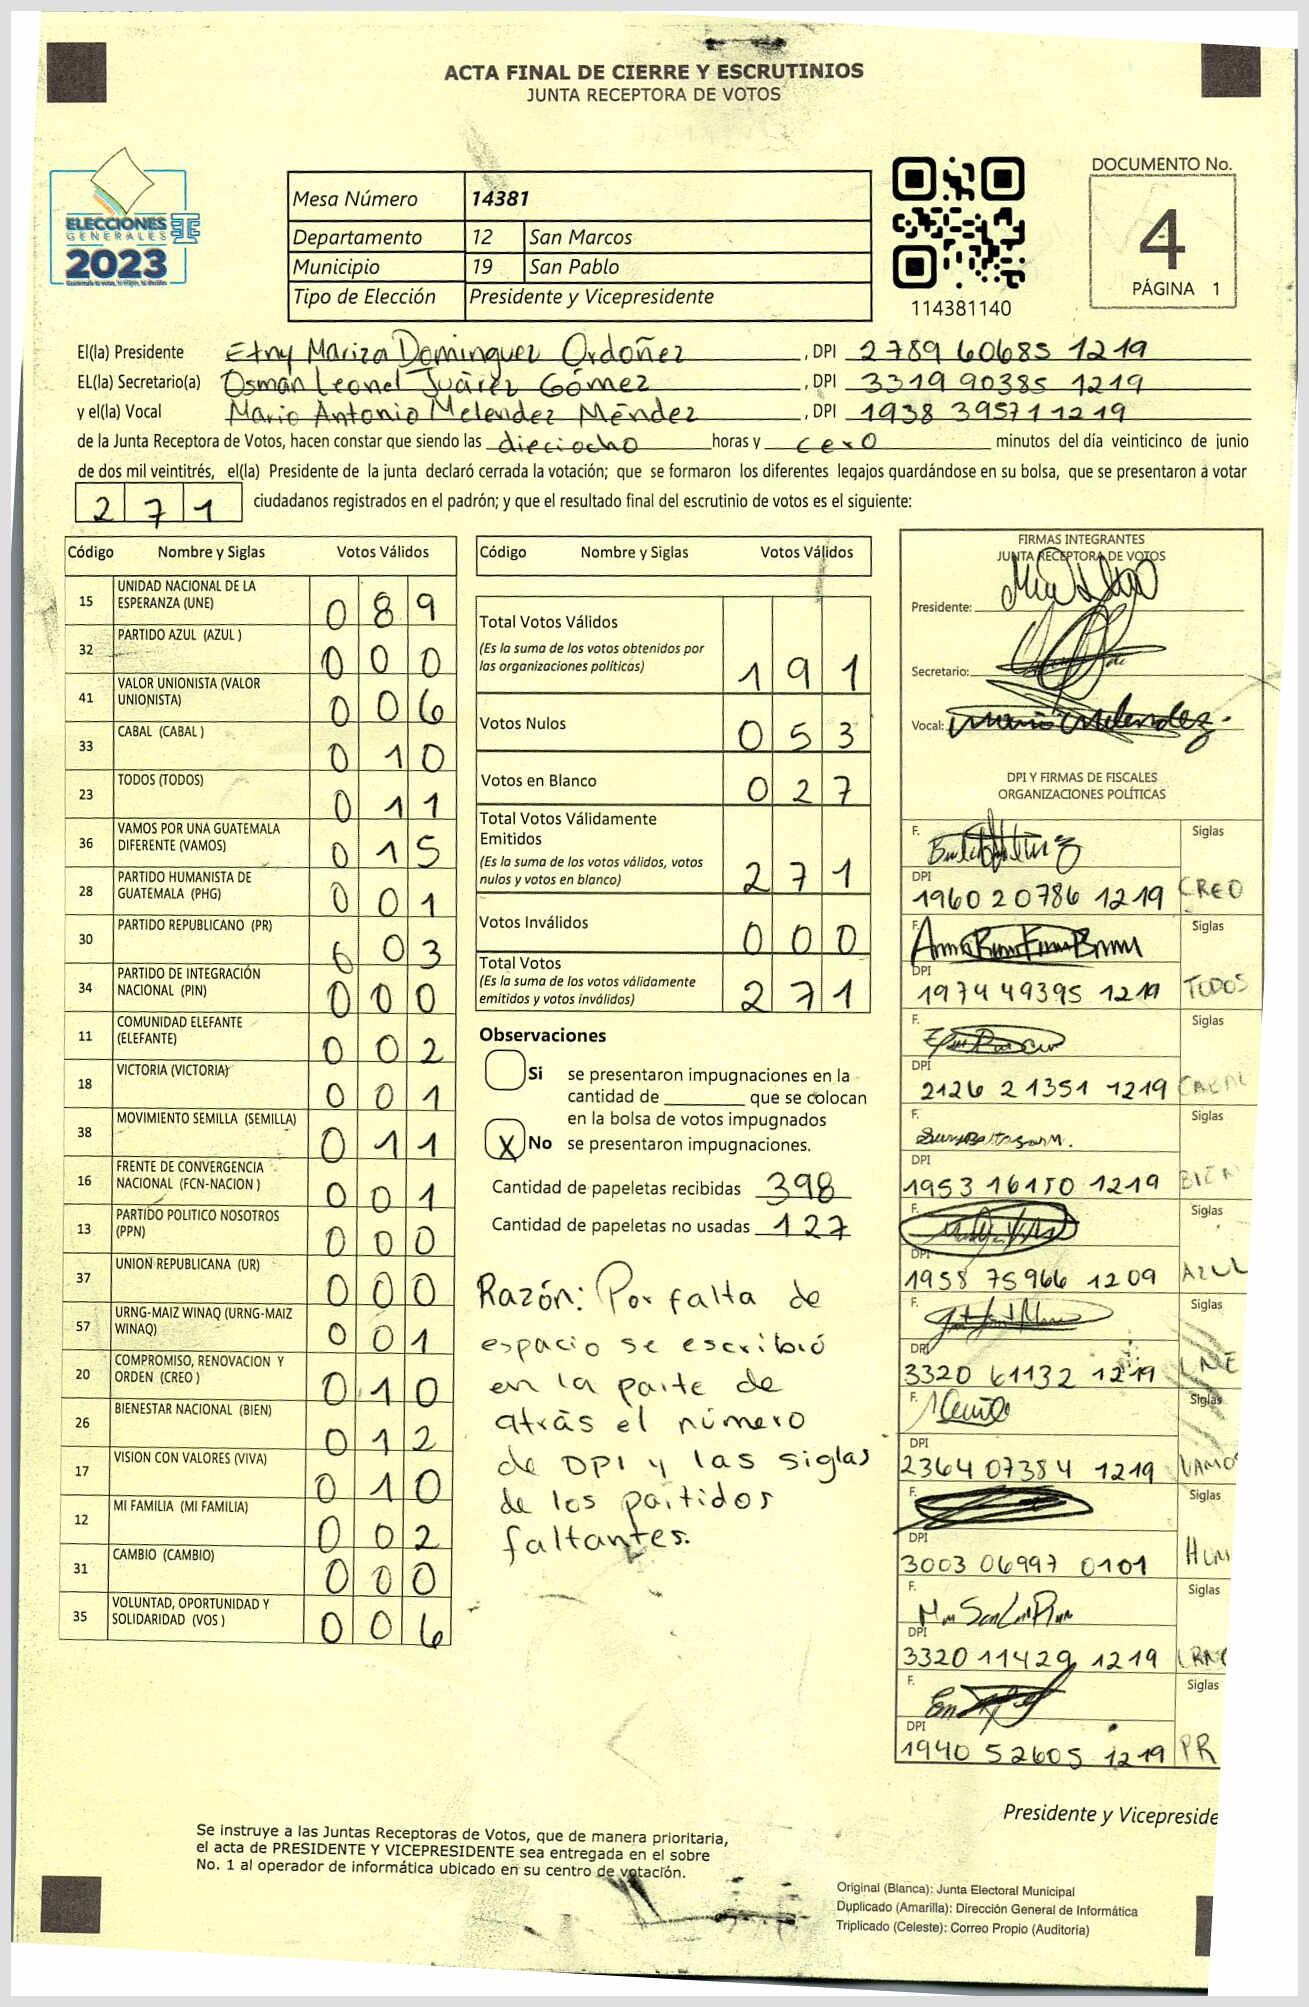 ACTA FINAL DE CIERRE Y ESCRUTINIOS
JUNTA RECEPTORA DE VOTOS
ELECCIONES
GENERALES
2023
Mesa Número 14381
Departamento 12 San Marcos
Municipio 19 San Pablo
Tipo de Elección Presidente y Vicepresidente
114381140
DOCUMENTO No.
4
PÁGINA 1
El(la) Presidente Etny Mariza Dominguez Ordoñez , DPI 2789 60685 1219
EL(la) Secretario(a) Osman Leonel Juárez Gómez , DPI 3319 90385 1219
y el(la) Vocal Mario Antonio Melendez Méndez , DPI 1938 39571 1219
de la Junta Receptora de Votos, hacen constar que siendo las dieciocho horas y cero minutos del día veinticinco de junio
de dos mil veintitrés, el(la) Presidente de la junta declaró cerrada la votación; que se formaron los diferentes legajos guardándose en su bolsa, que se presentaron a votar
271 ciudadanos registrados en el padrón; y que el resultado final del escrutinio de votos es el siguiente:
Código Nombre y Siglas Votos Válidos
15 UNIDAD NACIONAL DE LA
ESPERANZA (UNE) 089
32 PARTIDO AZUL (AZUL ) 000
41 VALOR UNIONISTA (VALOR
UNIONISTA) 006
33 CABAL (CABAL ) 010
23 TODOS (TODOS) 011
36 VAMOS POR UNA GUATEMALA
DIFERENTE (VAMOS) 015
28 PARTIDO HUMANISTA DE
GUATEMALA (PHG) 001
30 PARTIDO REPUBLICANO (PR) 003
34 PARTIDO DE INTEGRACIÓN
NACIONAL (PIN) 000
11 COMUNIDAD ELEFANTE
(ELEFANTE) 002
18 VICTORIA (VICTORIA) 001
38 MOVIMIENTO SEMILLA (SEMILLA) 011
16 FRENTE DE CONVERGENCIA
NACIONAL (FCN-NACION ) 001
13 PARTIDO POLITICO NOSOTROS
(PPN) 000
37 UNION REPUBLICANA (UR) 000
57 URNG-MAIZ WINAQ (URNG-MAIZ
WINAQ) 001
20 COMPROMISO, RENOVACION Y
ORDEN (CREO ) 010
26 BIENESTAR NACIONAL (BIEN) 012
17 VISION CON VALORES (VIVA) 010
12 MI FAMILIA (MI FAMILIA) 002
31 CAMBIO (CAMBIO) 000
35 VOLUNTAD, OPORTUNIDAD Y
SOLIDARIDAD (VOS ) 006
Código Nombre y Siglas Votos Válidos
Total Votos Válidos
(Es la suma de los votos obtenidos por
las organizaciones políticas) 191
Votos Nulos 053
Votos en Blanco 027
Total Votos Válidamente
Emitidos
(Es la suma de los votos válidos, votos
nulos y votos en blanco) 271
Votos Inválidos 000
Total Votos
(Es la suma de los votos válidamente
emitidos y votos inválidos) 271
Observaciones
Si se presentaron impugnaciones en la
cantidad de ________ que se colocan
en la bolsa de votos impugnados
X No se presentaron impugnaciones.
Cantidad de papeletas recibidas 398
Cantidad de papeletas no usadas 127
Razón: Por falta de
espacio se escribió
en la parte de
atrás el número
de DPI y las siglas
de los partidos
faltantes.
FIRMAS INTEGRANTES
JUNTA RECEPTORA DE VOTOS
Presidente:
Secretario:
Vocal: Mario Melendez.
DPI Y FIRMAS DE FISCALES
ORGANIZACIONES POLÍTICAS
F. Siglas
DPI
1960 20786 1219 CREO
F. Siglas
DPI
1974 49395 1219 TODOS
F. Siglas
DPI
2126 21351 1219 CABAL
F. Siglas
DPI
1953 16150 1219 BIEN
F. Siglas
DPI
1958 75966 1209 AZUL
F. Siglas
DPI
3320 61132 1219 UNE
F. Siglas
DPI
2364 07384 1219 VAMOS
F. Siglas
DPI
3003 06997 0101 HUM
F. Siglas
DPI
3320 11429 1219 URNG
F. Siglas
DPI
1940 52605 1219 PR
Presidente y Vicepreside
Se instruye a las Juntas Receptoras de Votos, que de manera prioritaria,
el acta de PRESIDENTE Y VICEPRESIDENTE sea entregada en el sobre
No. 1 al operador de informática ubicado en su centro de votación.
Original (Blanca): Junta Electoral Municipal
Duplicado (Amarilla): Dirección General de Informática
Triplicado (Celeste): Correo Propio (Auditoría)